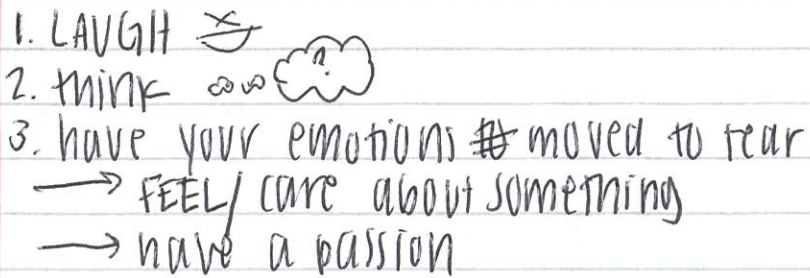 1. LAUGH
2. think ?
3. have your emotions moved to tear
→ FEEL/ care about something
→ have a passion